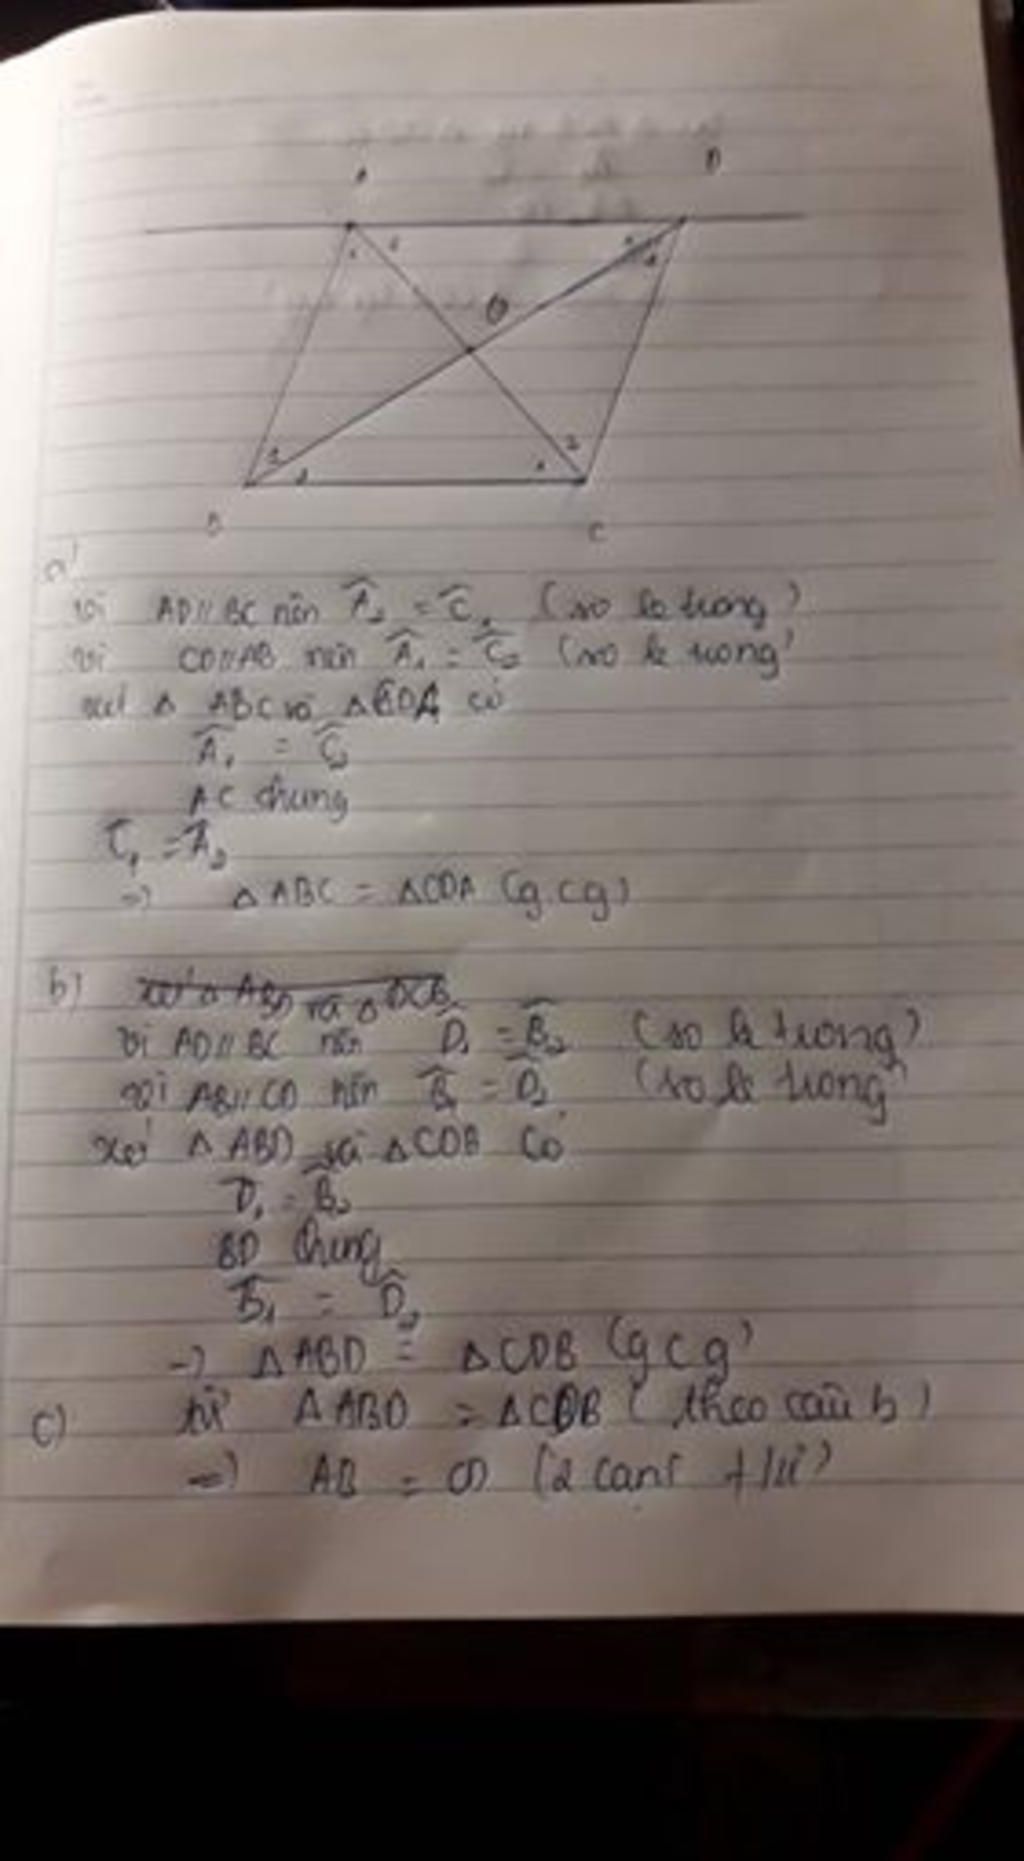 D
O
1
2
1
C
a)
vì AD//BC nên Â₂ = Ĉ₁ (so le trong)
vì CD//AB nên Â₁ = Ĉ₂ (so le trong)
xét Δ ABC và ΔCDA có
Â₁ = Ĉ₂
AC chung
Ĉ₁ = Â₂
=> Δ ABC = ΔCDA (g.c.g)
b) xét Δ ABD và Δ DCB
vì AD//BC nên D̂₁ = B̂₂ (so le trong)
vì AB//CD nên B̂₁ = D̂₂ (so le trong)
xét Δ ABD và ΔCDB có
D̂₁ = B̂₂
BD chung
B̂₁ = D̂₂
=> ΔABD = ΔCDB (g c g)
c) ΔABD = ΔCDB (theo câu b)
=> AB = CD (2 cạnh t/ứ)